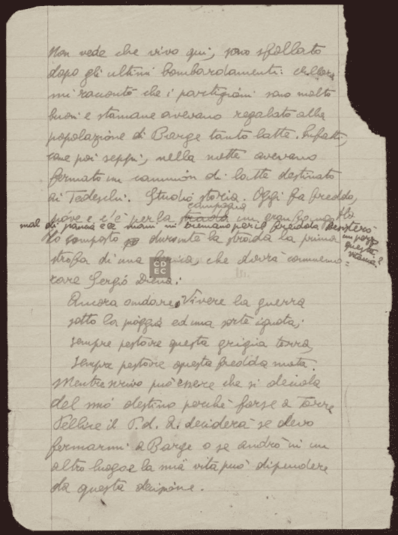 non vede che vivo qui, sono sfollato
dopo gli ultimi bombardamenti. allora
mi raccontò che i partigiani sono molto
buoni e stamane avevano regalato alla
popolazione di Barge tanto latte. Infatti,
come poi seppi, nella notte avevano
fermato un camion di latte destinato
ai Tedeschi. Studio storia. Oggi fa freddo,
piove e c'è per la campagna un gran
mal di pancia e le mani mi tremano per il freddo.
Ho composto durante la strada la prima
strofa di una che dovrà commemo=
rare Sergio Diena:
Ancora andare, Vivere la guerra
sotto la pioggia ed una sorte ignota;
sempre pestare questa grigia terra,
sempre pestare questa fredda mota.
Mentre scrivo può essere che si decida
del mio destino perché forse a Torre
Pellice il P.d.A. deciderà se devo
fermarmi a Barge o se andrò in un
altro luogo e la mia vita può dipendere
da questa decisione.
CDEC